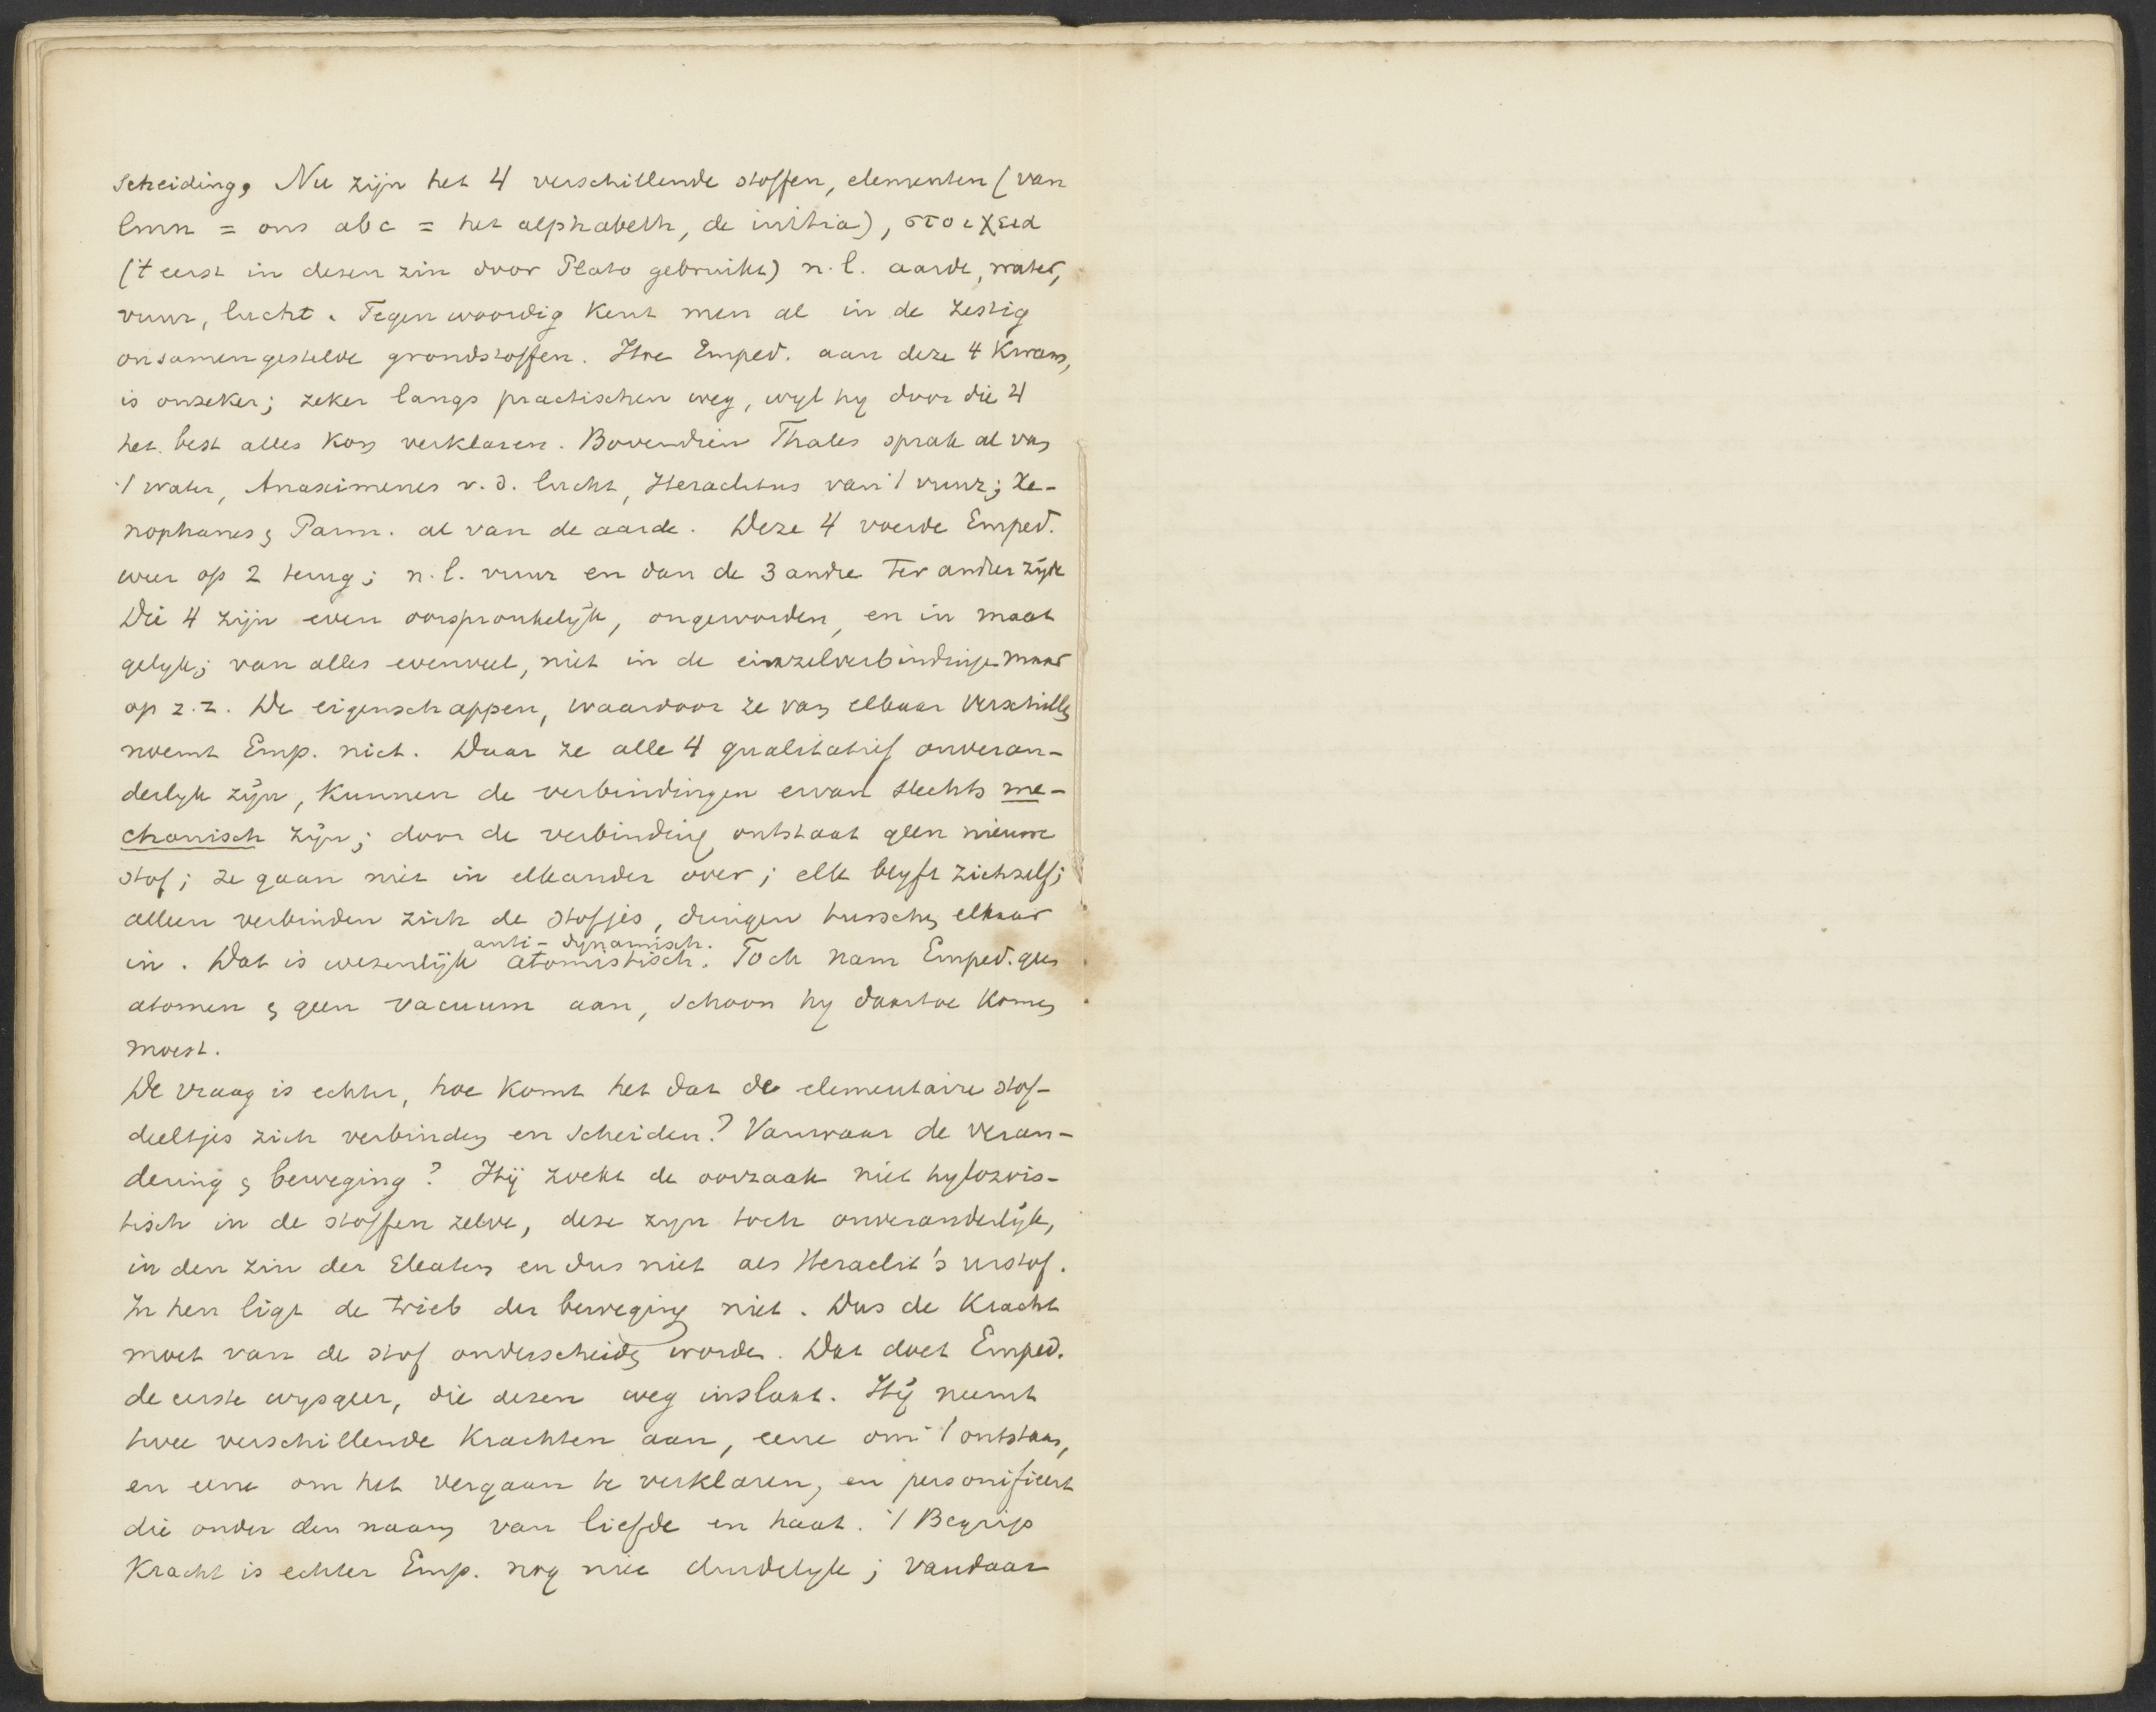 scheiding, Nu zijn het 4 verschillende stoffen, elementen (van
lmn = ons abc = het alphabeth, de initia), στοιχεια
('t eerst in desen zin door Plato gebruikt) n.l. aarde, water,
vuur, lucht. Tegenwoordig kent men al in de zestig
onsamengestelde grondstoffen. Hoe Emped. aan deze 4 kwam,
is onseker; zeker langs practischen weg, wyl hy door die 4
het best alles kon verklaren. Bovendien Thales sprak al van
't water, Anaximenes v.d. lucht, Heraclitus van 't vuur; Xe-
nophanes & Parm. al van de aarde. Deze 4 voerde Emped.
weer op 2 terug; n.l. vuur en dan de 3 andre ter andler zijde
Die 4 zijn even oorspronkelijk, ongeworden, en in maat
gelyk; van alles evenveel, niet in de einzelverbindinge maar
op z.z. De eigenschappen, waardoor ze van elkaar verschillen
noemt Emp. niet. Daar ze alle 4 qualitatief onveran-
derlyk zijn, kunnen de verbindingen ervan slechts me-
chanisch zijn; door de verbinding ontstaat geen nieuwe
stof; ze gaan niet in elkander over; elk blyft zichzelf;
alleen verbinden zich de stofjes, dringen tusschen elkaar
anti-dynamisch.
in. Dat is wesenlijk atomistisch. Toch nam Emped. geen
atomen & geen vacuum aan, schoon hy daartoe komen
moest.
De vraag is echter, hoe komt het dat de elementaire stof-
deeltjes zich verbinden en scheiden? Vanwaar de veran-
dering & beweging? Hij zoekt de oorzaak niet hylozois-
tisch in de stoffen zelve, dese zyn toch onveranderlijk,
in den zin der Eleaten en dus niet als Heraclit's urstof.
In hen ligt de trieb der beweging niet. Dus de kracht
moet van de stof onderscheiden worden. Dat doet Emped.
de eerste wysgeer, die desen weg inslaat. Hij neemt
twee verschillende krachten aan, eene om 't ontstaan,
en eene om het vergaan te verklaren, en personifieert
die onder den naam van liefde en haat. 't Begrip
kracht is echter Emp. nog niet duidelyk; vandaar